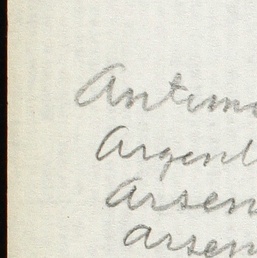 Antimo
Argent
Arsen
arsen